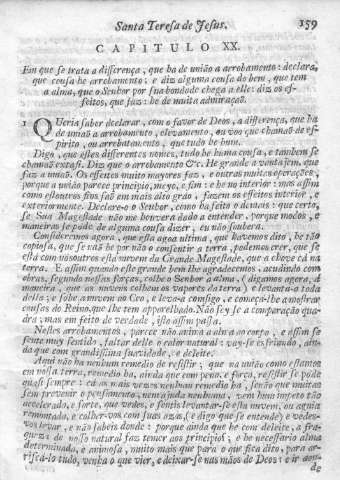 Santa Teresa de Jesus. 159
CAPITULO XX.
Em que se trata a differença, que ha de união a arrobamento: declara,
que cousa he arrobamento: e diz alguma cousa do bem, que tem
a alma, que o Senhor por sua bondade chega a elle: diz os ef-
feitos, que faz: he de muita admiração.
1 QUeria saber declarar, com o favor de Deos, a differença, que ha
de união a arrobamento, elevamento, ou voo que chamaõ de es-
pirito, ou arrebatamento, que tudo he hum.
Digo, que estes differentes nomes, tudo he huma cousa, e tambem se
chamaõ extasi. Diz que o arrobamento &c. He grande a ventajem, que
faz a união. Os effeitos muito mayores faz, e outras muitas operações,
porque a união parece principio, meyo, e fim: e he no interior: mas assim
como estoutros fins saõ em mais alto gráo, fazem os effeitos interior, e
exteriormente. Declare-o o Senhor, como ha feito o demais: que certo,
se Sua Magestade não me houvera dado a entender, porque modos, e
maneiras se póde de alguma cousa dizer, eu não soubera.
Consideremos agora, que esta agoa ultima, que havemos dito, he taõ
copiosa, que se naõ he por não o consentir a terra, podemos crer, que se
está com nosoutros esta nuvem da Grande Magestade, que a chove cá na
terra. E assim quando este grande bem lhe agradecemos, acudindo com
obras, segundo nossas forças, colhe o Senhor a alma, (digamos agora, á
maneira, que as nuvens colhem os vapores da terra) e levanta-a toda
della; e sobe a nuvem ao Ceo, e leva-a comsigo, e começa-lhe a mostrar
cousas do Reino, que lhe tem apparelhado. Não sey se a comparação qua-
dra; mas em feito de verdade, isto assim passa.
Nestes arrobamentos, parece não anima a alma ao corpo, e assim se
sente muy sentido, faltar delle o calor natural: vay-se esfriando, ain-
da que com grandissima suavidade, e deleite.
Aqui não ha nenhum remedio de resistir; que na união como estamos
em nossa terra, remedio ha, ainda que com pena, e força, resistir se póde
quasi sempre: cá as mais vezes nenhum remedio ha, senão que muitas
sem prevenir o pensamento, nem ajuda nenhuma, vem hum impeto taõ
accelerado, e forte, que vedes, e sentis levantar-se esta nuvem, ou aguia
remontada, e colher-vos com suas azas, (e digo que se entende) e vedes-
vos levar, e não sabeis donde: porque ainda que he com deleite, a fra-
queza de nosso natural faz temer aos principios; e he necessario alma
determinada, e animosa, muito mais que para o que fica dito, para ar-
riscá-lo tudo, venha o que vier, e deixar-se nas mãos de Deos: e ir aon-
de